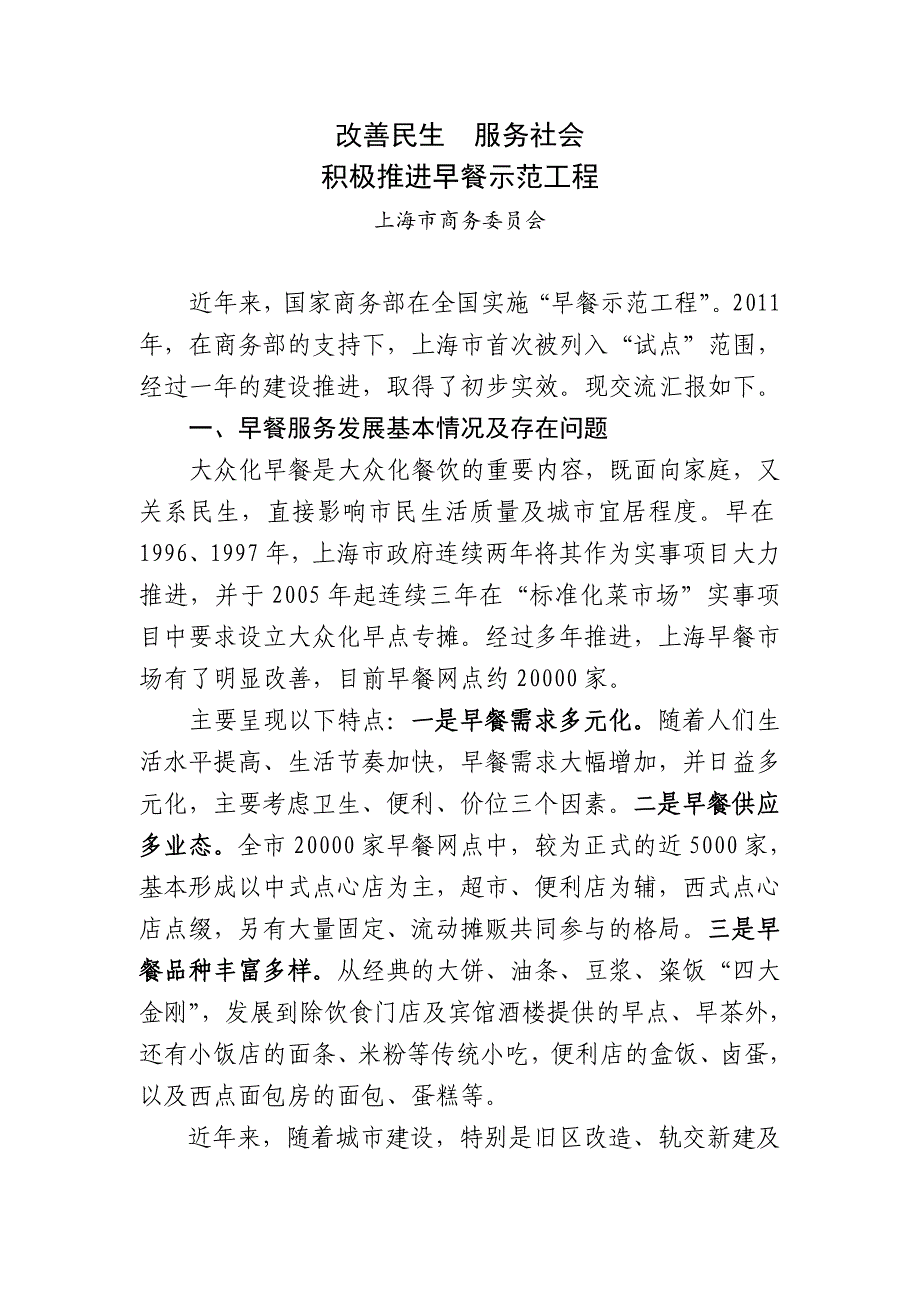 改善民生　服务社会
积极推进早餐示范工程
上海市商务委员会
近年来，国家商务部在全国实施“早餐示范工程”。2011
年，在商务部的支持下，上海市首次被列入“试点”范围，
经过一年的建设推进，取得了初步实效。现交流汇报如下。
一、早餐服务发展基本情况及存在问题
大众化早餐是大众化餐饮的重要内容，既面向家庭，又
关系民生，直接影响市民生活质量及城市宜居程度。早在
1996、1997 年，上海市政府连续两年将其作为实事项目大力
推进，并于 2005 年起连续三年在“标准化菜市场”实事项
目中要求设立大众化早点专摊。经过多年推进，上海早餐市
场有了明显改善，目前早餐网点约 20000 家。
主要呈现以下特点：一是早餐需求多元化。随着人们生
活水平提高、生活节奏加快，早餐需求大幅增加，并日益多
元化，主要考虑卫生、便利、价位三个因素。二是早餐供应
多业态。全市 20000 家早餐网点中，较为正式的近 5000 家，
基本形成以中式点心店为主，超市、便利店为辅，西式点心
店点缀，另有大量固定、流动摊贩共同参与的格局。三是早
餐品种丰富多样。从经典的大饼、油条、豆浆、粢饭“四大
金刚”，发展到除饮食门店及宾馆酒楼提供的早点、早茶外，
还有小饭店的面条、米粉等传统小吃，便利店的盒饭、卤蛋，
以及西点面包房的面包、蛋糕等。
近年来，随着城市建设，特别是旧区改造、轨交新建及